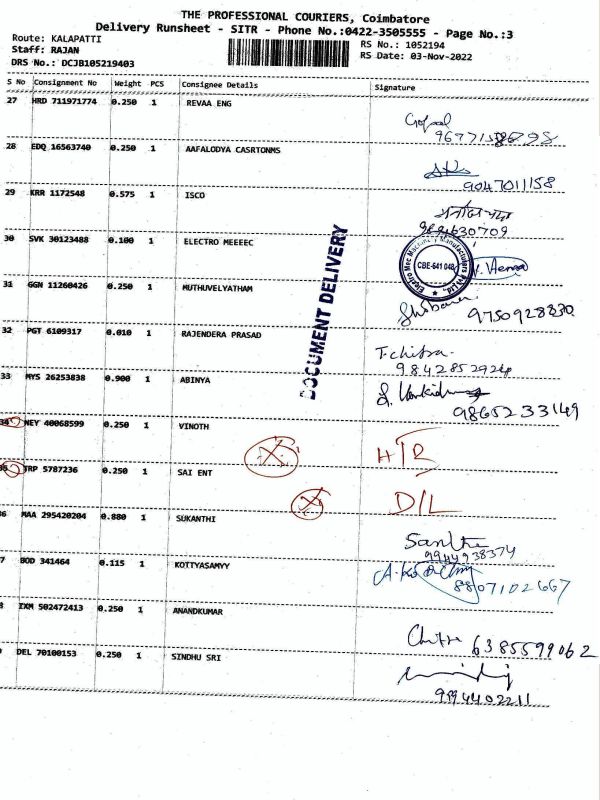 THE PROFESSIONAL COURIERS, Coimbatore
Delivery Runsheet - SITR - Phone No.:0422-3505555 - Page No.:3
Route: KALAPATTI
RS No.: 1052194
Staff: RAJAN
RS Date: 03-Nov-2022
DRS No.: DCJB105219403
S No Consignment No Weight PCS Consignee Details Signature
27 HRD 711971774 0.250 1 REVAA ENG
Gopal
28 EDQ 16563740 0.250 1 AAFALODYA CASRTONMS
9047011158
29 KRR 1172548 0.575 1 ISCO
9894630709
30 SVK 30123488 0.100 1 ELECTRO MEEEEC
CBE-641 048
V. Hema
31 GGN 11260426 0.250 1 MUTHUVELYATHAM
Shobana
9750928330
DOCUMENT DELIVERY
32 PGT 6109317 0.010 1 RAJENDERA PRASAD
T. chitra
33 MYS 26253838 0.900 1 ABINYA
9865233149
34 NEY 40068599 0.250 1 VINOTH
HTR
35 TRP 5787236 0.250 1 SAI ENT
D/L
6 MAA 295420204 0.880 1 SUKANTHI
Santhi
9944938374
7 BOD 341464 0.115 1 KOTTYASAMYY
8807102667
8 IXM 502472413 0.250 1 ANANDKUMAR
Chitra 6385599062
DEL 70100153 0.250 1 SINDHU SRI
9994402211